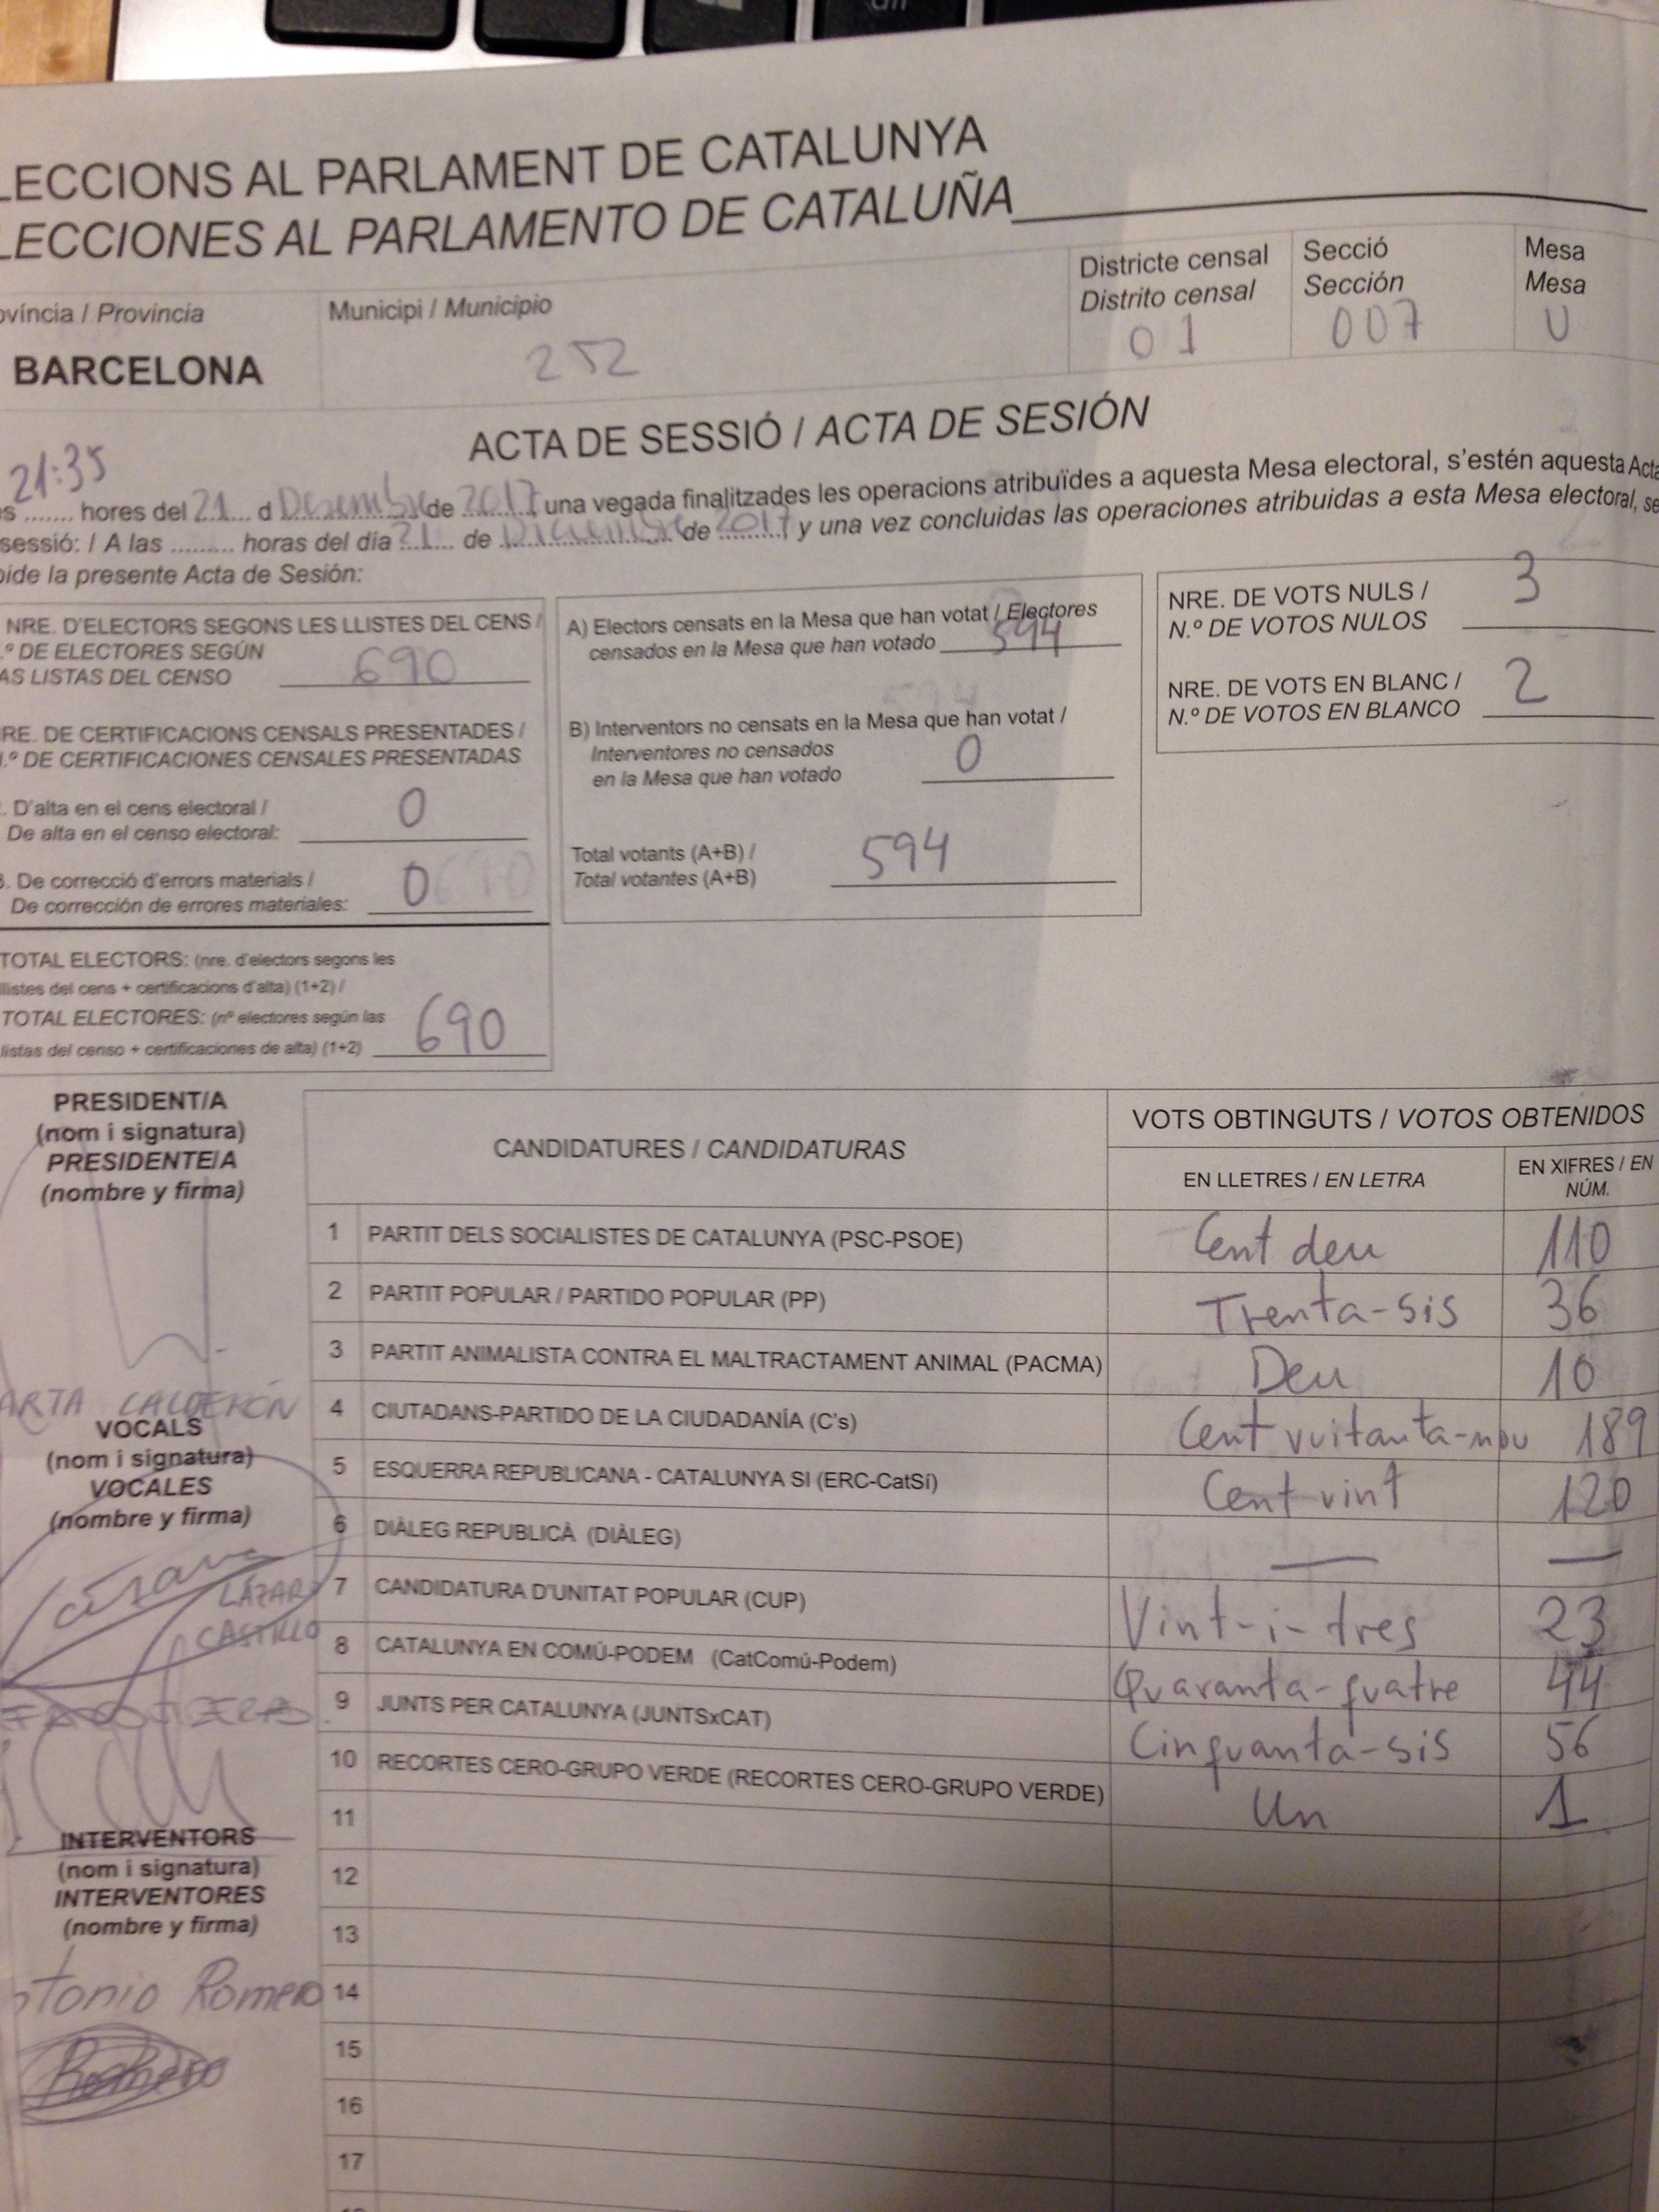 LECCIONS AL PARLAMENT DE CATALUNYA
LECCIONES AL PARLAMENTO DE CATALUÑA
ovíncia / Provincia
BARCELONA
Municipi / Municipio
252
Districte censal
Distrito censal
01
Secció
Sección
007
Mesa
Mesa
U
ACTA DE SESSIÓ / ACTA DE SESIÓN
21:35
s ....... hores del 21 d Desembre de 2017 una vegada finalitzades les operacions atribuïdes a aquesta Mesa electoral, s'estén aquesta Acta
sessió: / A las ......... horas del día 21 de Diciembre de 2017 y una vez concluidas las operaciones atribuidas a esta Mesa electoral, se
pide la presente Acta de Sesión:
NRE. D'ELECTORS SEGONS LES LLISTES DEL CENS /
.º DE ELECTORES SEGÚN
AS LISTAS DEL CENSO 690
RE. DE CERTIFICACIONS CENSALS PRESENTADES /
.º DE CERTIFICACIONES CENSALES PRESENTADAS
. D'alta en el cens electoral /
De alta en el censo electoral: 0
3. De correcció d'errors materials /
De corrección de errores materiales: 0
TOTAL ELECTORS: (nre. d'electors segons les
llistes del cens + certificacions d'alta) (1+2) /
TOTAL ELECTORES: (nº electores según las
listas del censo + certificaciones de alta) (1+2) 690
A) Electors censats en la Mesa que han votat / Electores
censados en la Mesa que han votado 594
B) Interventors no censats en la Mesa que han votat /
Interventores no censados
en la Mesa que han votado 0
Total votants (A+B) /
Total votantes (A+B) 594
NRE. DE VOTS NULS /
N.º DE VOTOS NULOS 3
NRE. DE VOTS EN BLANC /
N.º DE VOTOS EN BLANCO 2
PRESIDENT/A
(nom i signatura)
PRESIDENTE/A
(nombre y firma)
ARTA CALDERÓN
VOCALS
(nom i signatura)
VOCALES
(nombre y firma)
LAZAR
CASTILLO
INTERVENTORS
(nom i signatura)
INTERVENTORES
(nombre y firma)
ntonio Romero
Romero
CANDIDATURES / CANDIDATURAS
VOTS OBTINGUTS / VOTOS OBTENIDOS
EN LLETRES / EN LETRA
EN XIFRES / EN
NÚM.
1 PARTIT DELS SOCIALISTES DE CATALUNYA (PSC-PSOE) Cent deu 110
2 PARTIT POPULAR / PARTIDO POPULAR (PP) Trenta-sis 36
3 PARTIT ANIMALISTA CONTRA EL MALTRACTAMENT ANIMAL (PACMA) Deu 10
4 CIUTADANS-PARTIDO DE LA CIUDADANÍA (C's) Cent vuitanta-nou 189
5 ESQUERRA REPUBLICANA - CATALUNYA SI (ERC-CatSí) Cent vint 120
6 DIÀLEG REPUBLICÀ (DIÀLEG) — —
7 CANDIDATURA D'UNITAT POPULAR (CUP) Vint-i-tres 23
8 CATALUNYA EN COMÚ-PODEM (CatComú-Podem) Quaranta-quatre 44
9 JUNTS PER CATALUNYA (JUNTSxCAT) Cinquanta-sis 56
10 RECORTES CERO-GRUPO VERDE (RECORTES CERO-GRUPO VERDE) Un 1
11
12
13
14
15
16
17